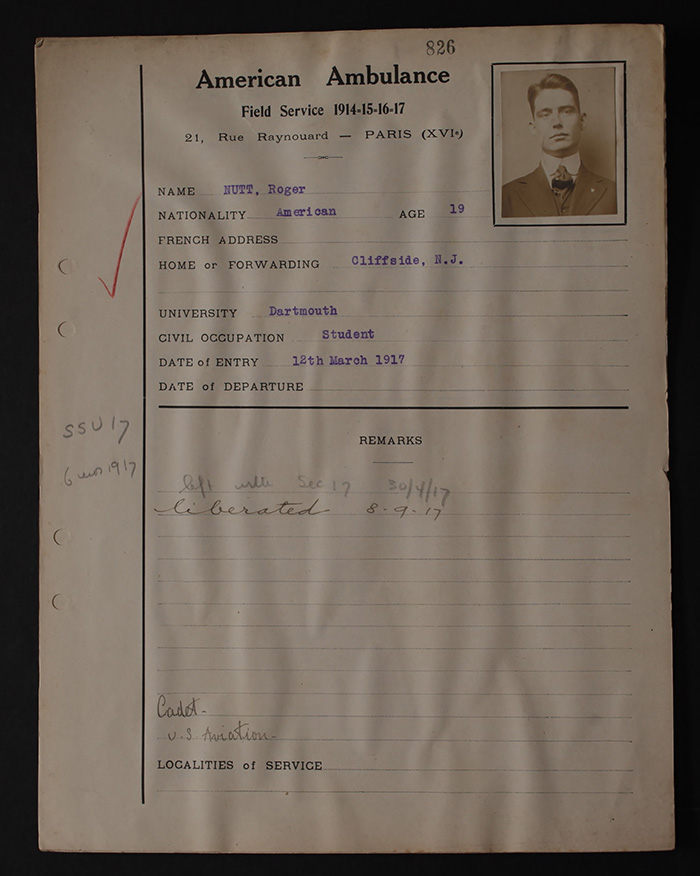 826
American Ambulance
Field Service 1914-15-16-17
21, Rue Raynouard — PARIS (XVIe)
NAME NUTT, Roger
NATIONALITY American AGE 19
FRENCH ADDRESS
HOME or FORWARDING Cliffside, N.J.
UNIVERSITY Dartmouth
CIVIL OCCUPATION Student
DATE of ENTRY 12th March 1917
DATE of DEPARTURE
SSU 17
6 mos 1917
REMARKS
left with Sec 17 30/4/17
liberated 8-9-17
Cadet-
U.S Aviation-
LOCALITIES of SERVICE